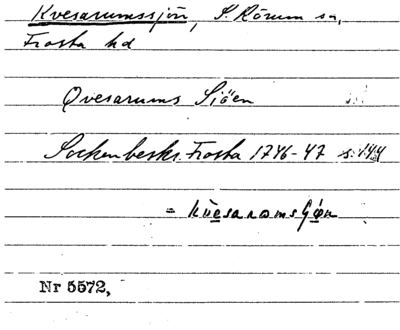 Kvesarumssjön, S. Rörum sn,
Frosta hd
Qvesarums Siöen
Sockenbeskr. Frosta 1746-47 s. 144
Nr 5572,